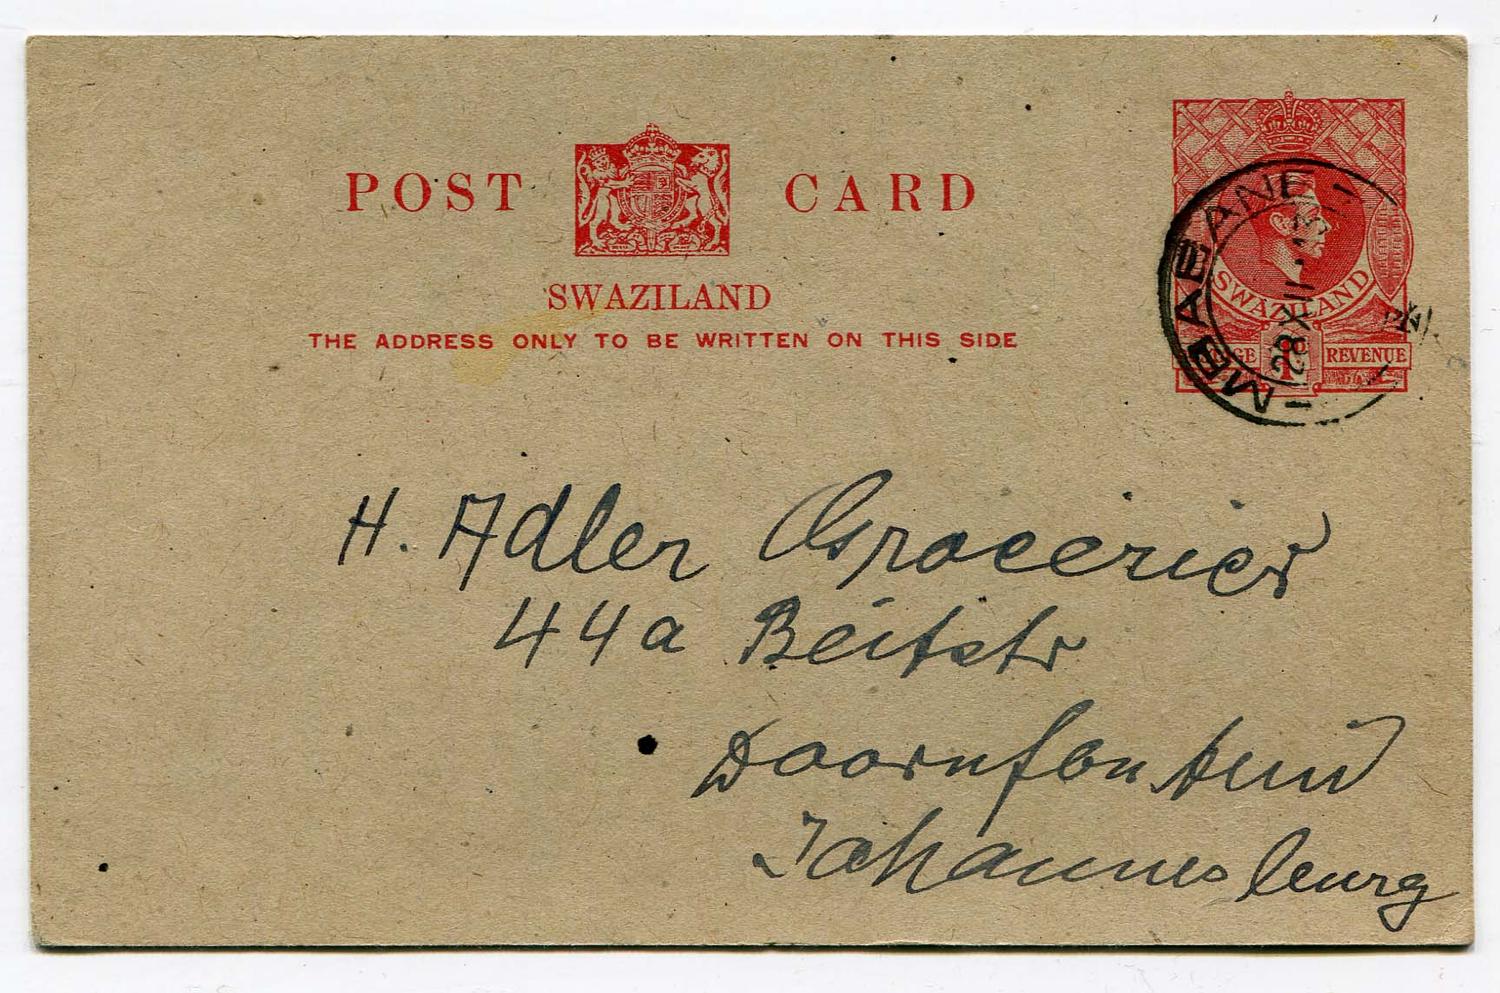 POST CARD
SWAZILAND
THE ADDRESS ONLY TO BE WRITTEN ON THIS SIDE
SWAZILAND
REVENUE
1D
MBABANE
28 XII
H. Adler Groceries
44a Beitstr
Doornfontein
Johannesburg